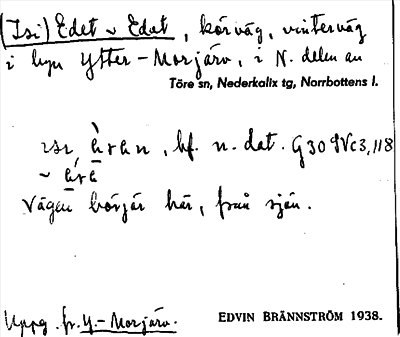 (Isi) Edet ~ Edat, körväg, vinterväg
i byn Ytter-Morjärv, i N. delen av
Töre sn, Nederkalix tg, Norrbottens l.
bf. n. dat. G30 9Vc3,118
~
Vägen börjar här, från sjön.
Uppg. fr. Y.-Morjärv.
EDVIN BRÄNNSTRÖM 1938.